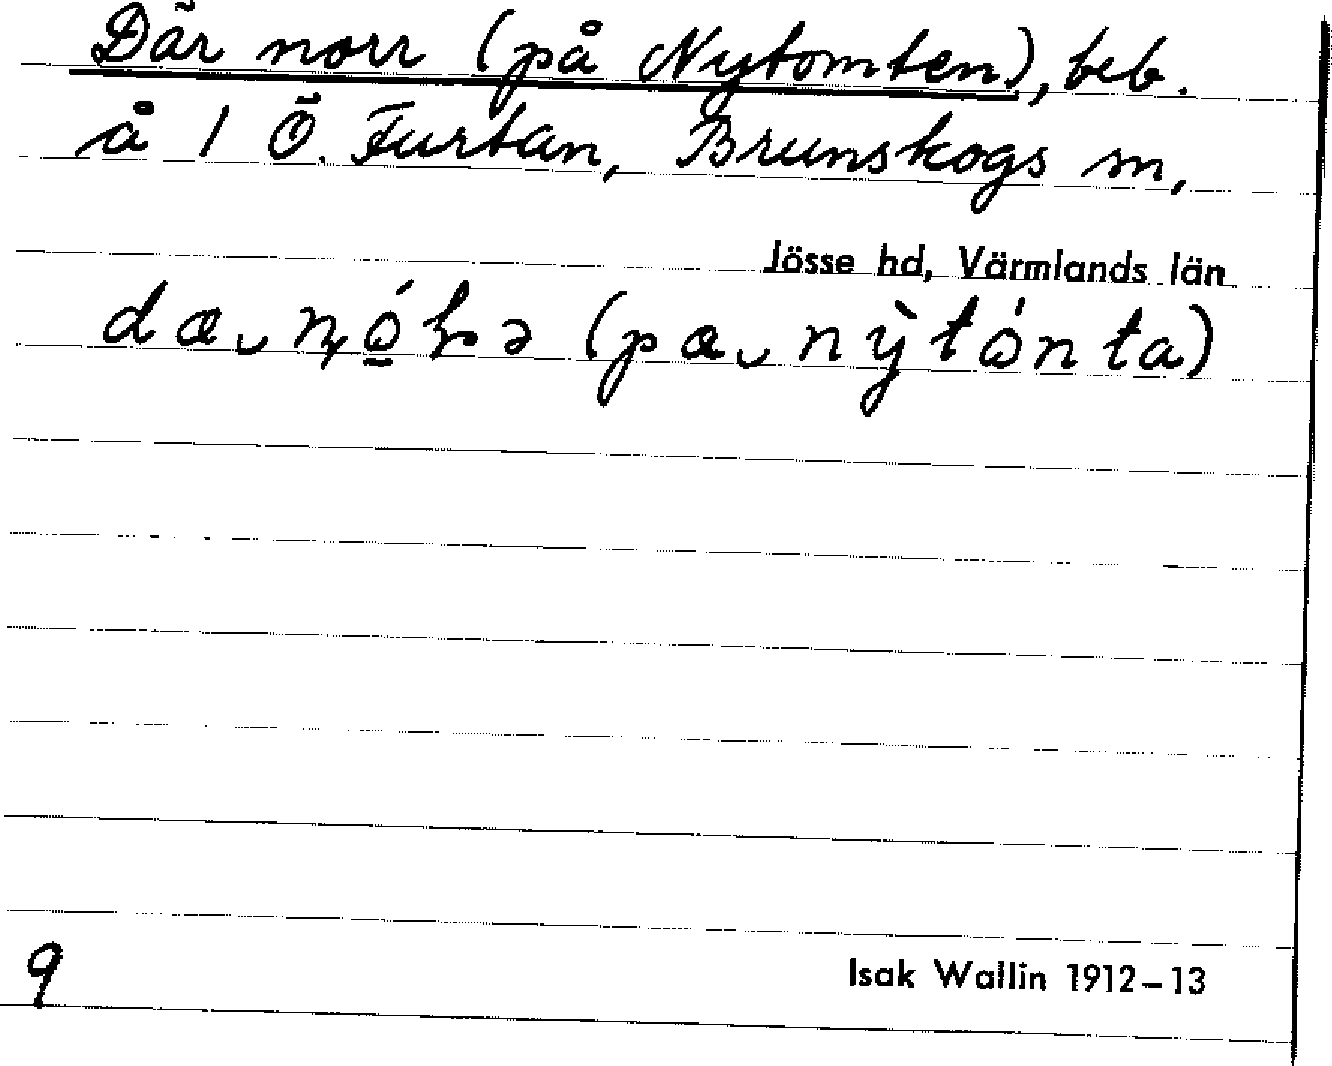 Där norr (på Nytomten), beb.
å 1 Ö. Furtan, Brunskogs sn,
Jösse hd, Värmlands län
(pa‿nỳtónta)
9
Isak Wallin 1912–13